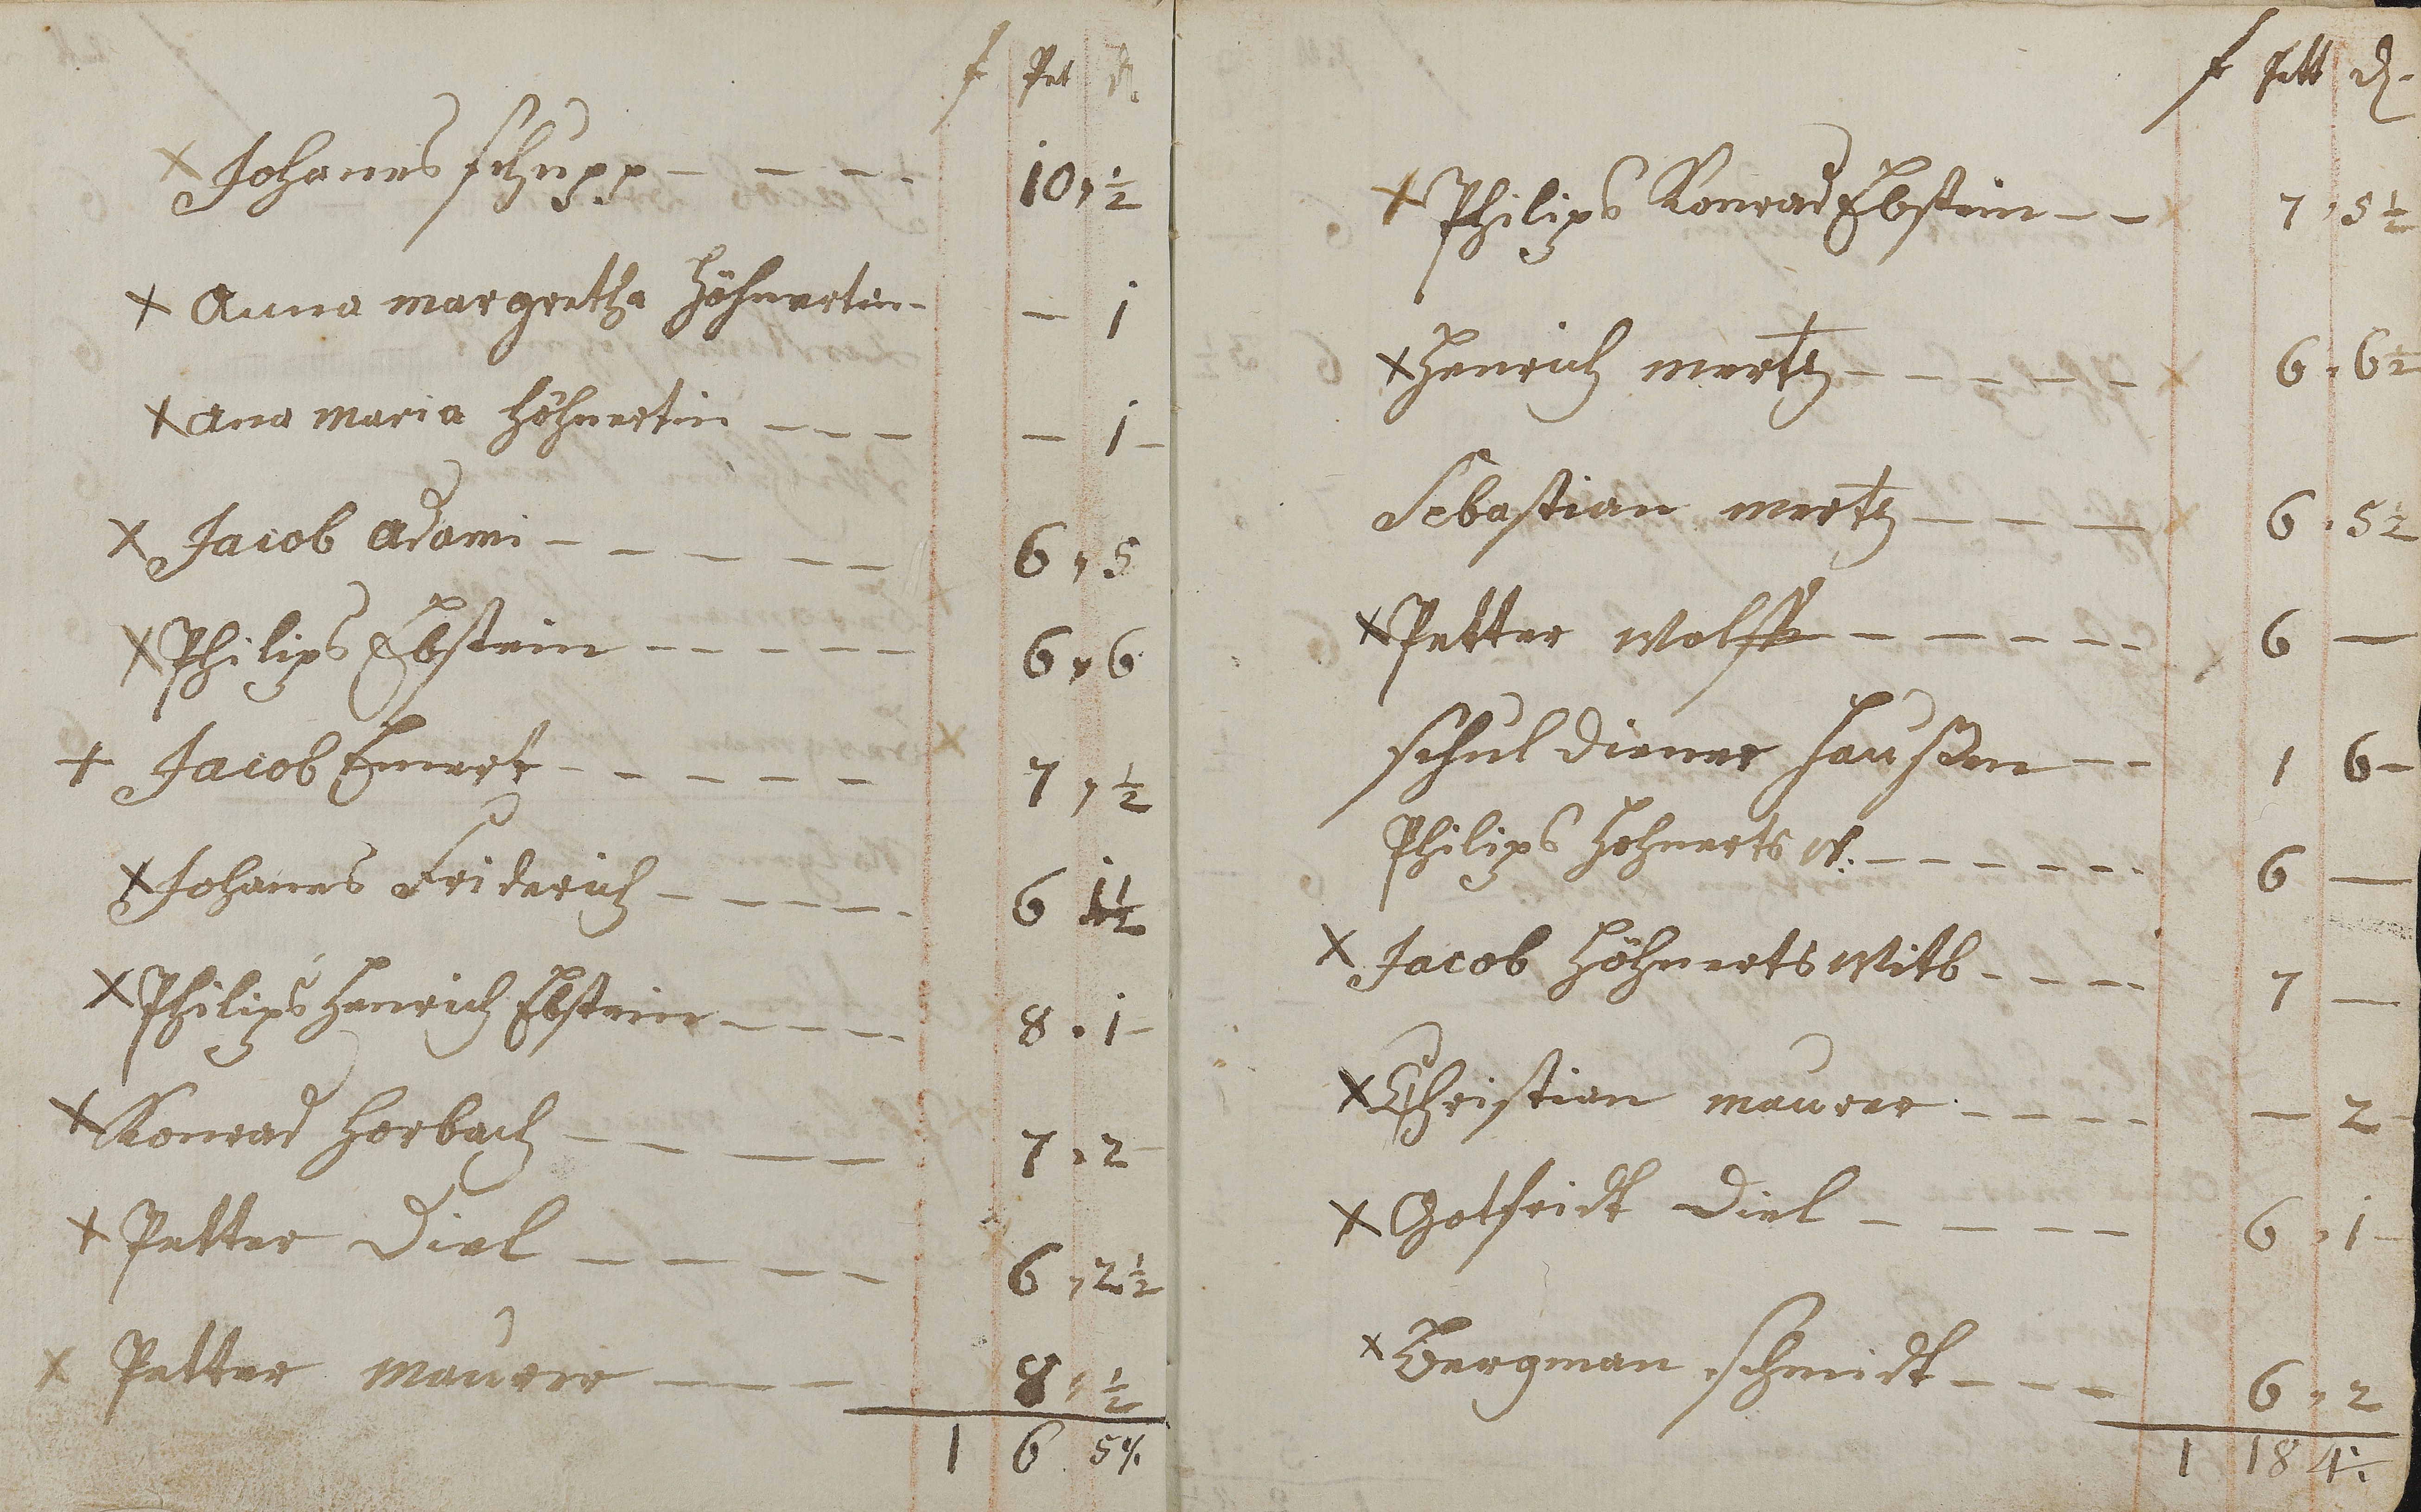 f Pet d
x Johanes schupp - - - - 10, ½
x Anna margretha Höhnertin - - 1
x ana maria Höhnertin - - - - 1 -
x Jacob adami - - - - - 6, 5
x Philips Ebstein - - - - - 6, 6
+ Jacob Emert - - - - - 7, ½
x Johanes Friderich - - - - - 6 1½
x Philips Henrich Ebstein - - - - 8. 1 -
x Konrad Horbach - - - - 7. 2 -
x Petter Diel - - - - - 6, 2½
x Petter maurer - - - 8, ½
1 6. 5½
f Pett d.
x Philips Konrad Ebstein - - 7, 5½
x Henrich mertz - - - - - 6. 6½
Sebastian mertz - - - 6. 5½
x Petter Wolff - - - - - 6 —
schul diener Haußen - - 1 6 -
Philips Hohnerts W. - - - - - - 6 —
x Jacob Höhnerts Witb - - - - 7 —
x Christian maurer - - - - - 2 -
x Gotfridt Diel - - - - 6. 1 -
x Bergman schmidt - - - - 6, 2
1 18 4.